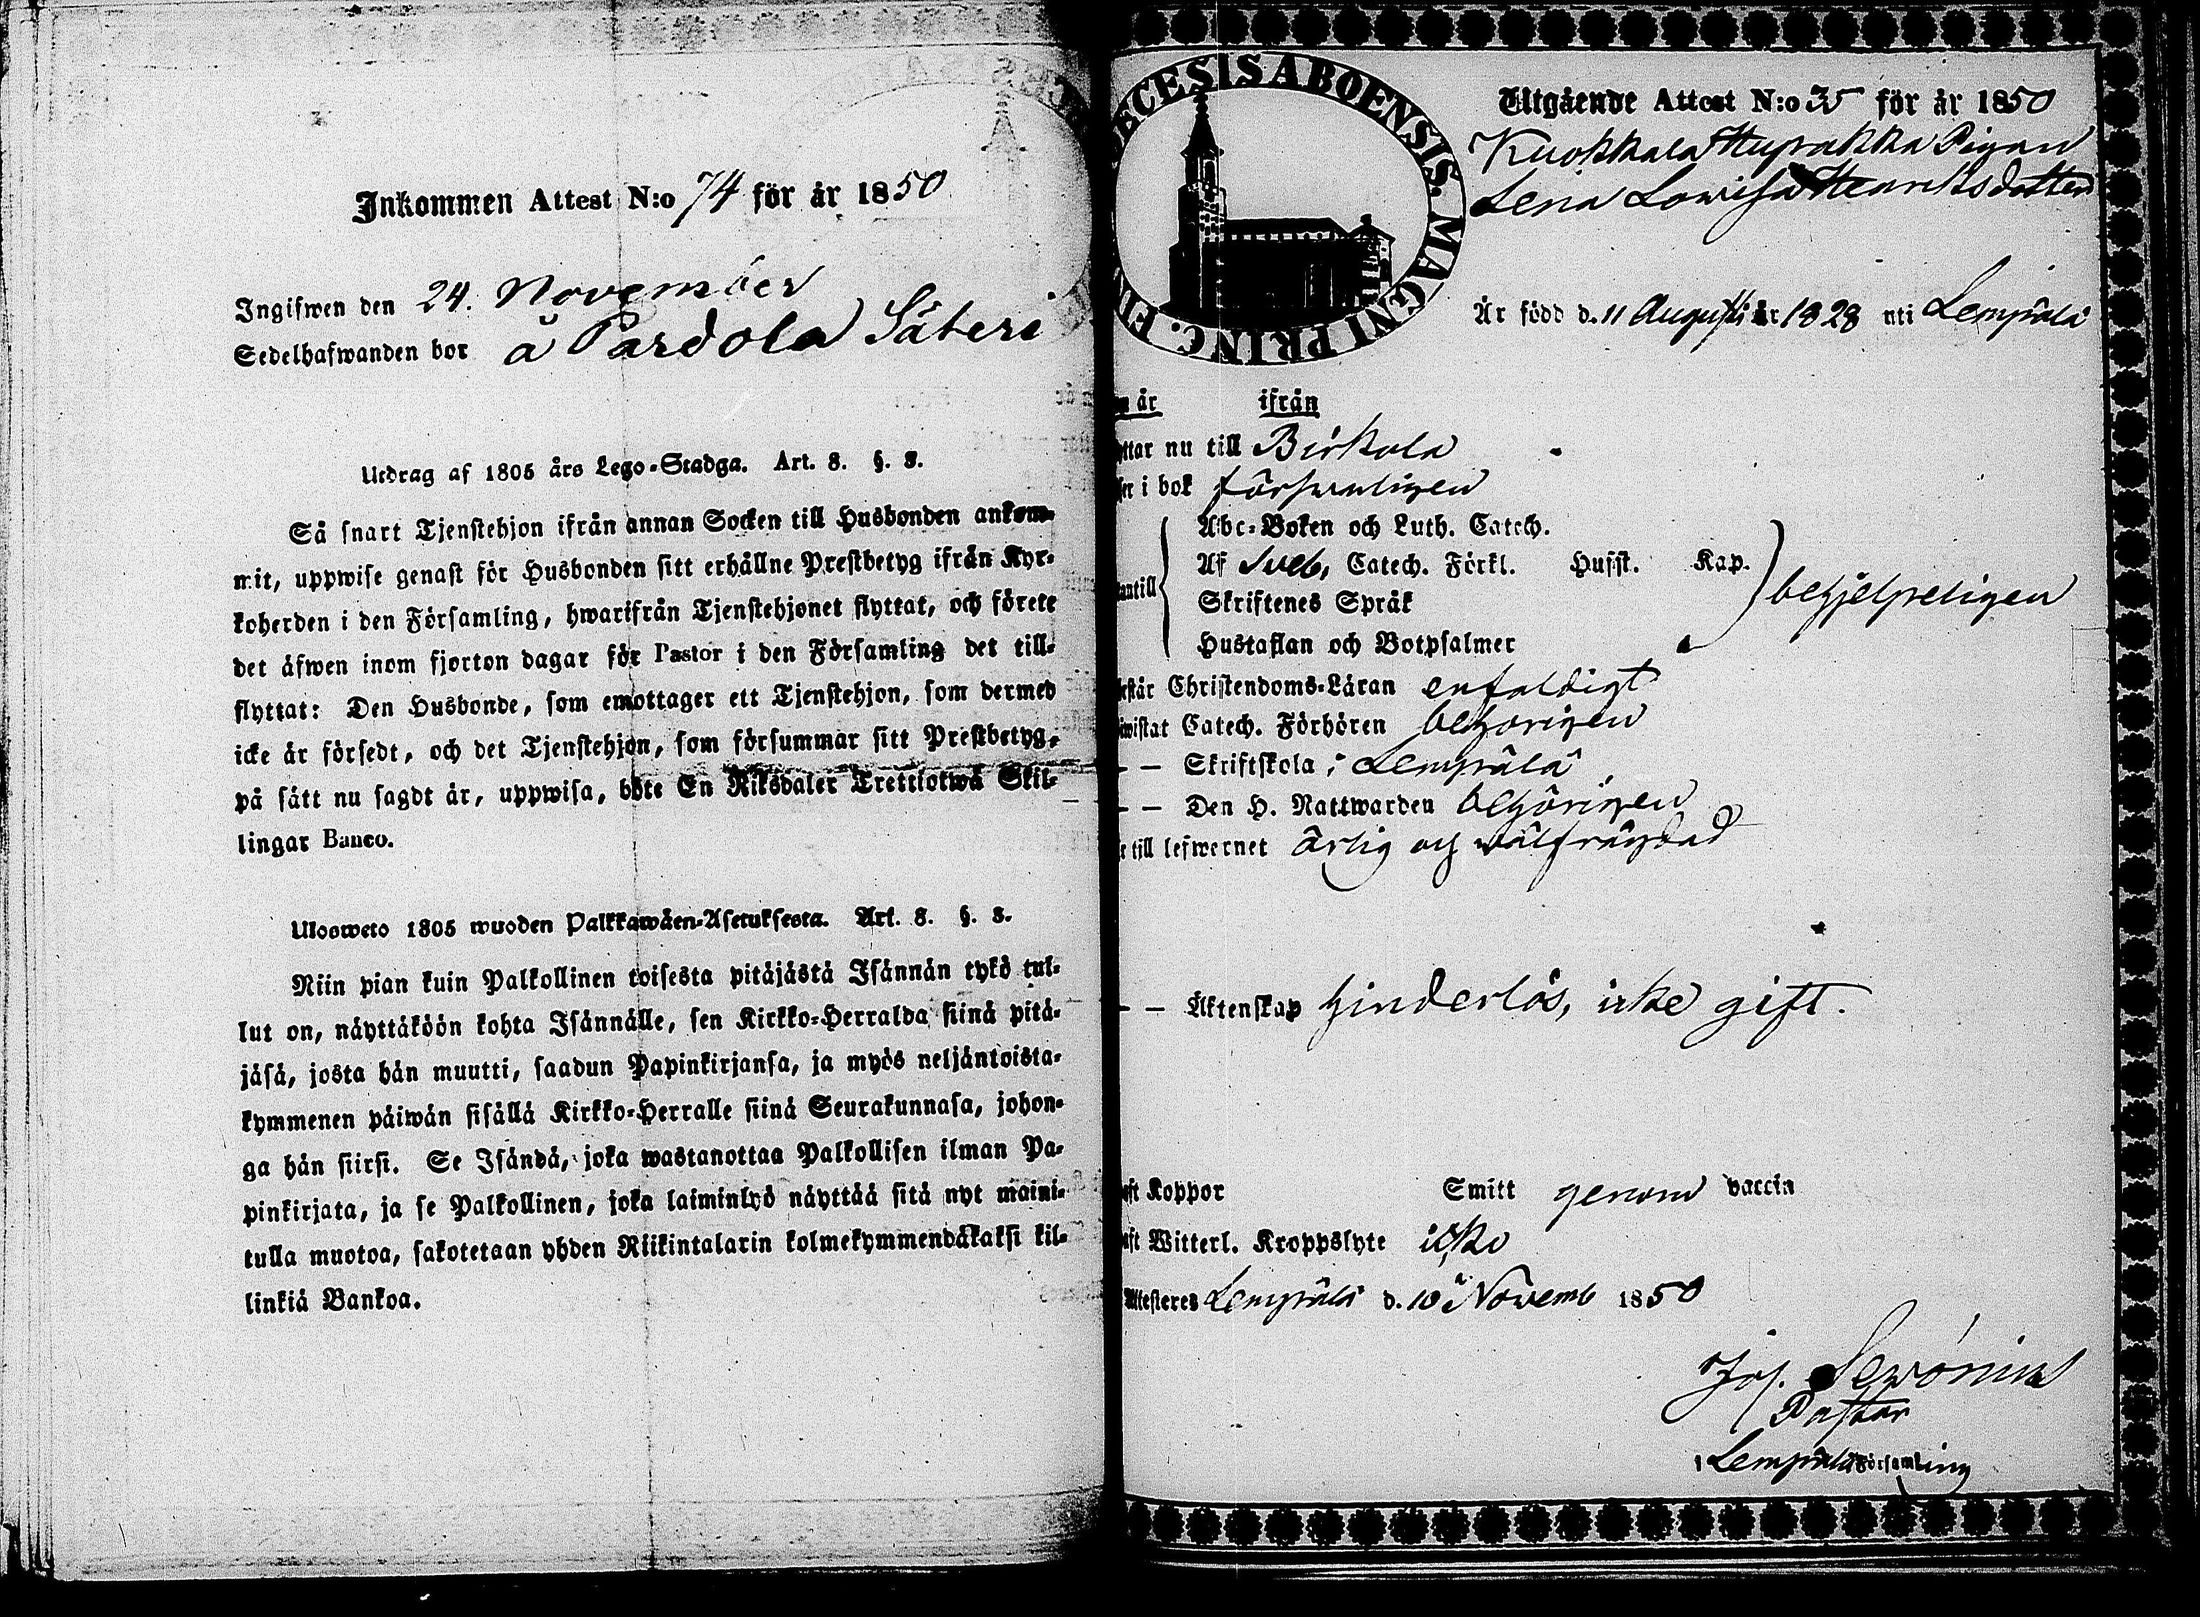 Inkommen Attest N:o 74 för år 1850
Ingifwen den 24. November
Sedelhafwanden bor å Pardola Säteri
Utdrag af 1805 års Lego-Stadga. Art. 8. §. 8.
Så snart Tjenstehjon ifrån annan Socken till Husbonden ankom-
mit, uppwise genast för Husbonden sitt erhållne Prestbetyg ifrån Kyr-
koherden i den Församling, hwarifrån Tjenstehjonet flyttat, och förete
det äfwen inom fjorton dagar för Pastor i den Församling det till-
flyttat: Den Husbonde, som emottager ett Tjenstehjon, som dermed
icke är försedt, och det Tjenstehjon, som försummar sitt Prestbetyg,
på sätt nu sagdt är, uppwisa, böte En Riksdaler Trettiotwå Skil-
lingar Banco.
Ulosweto 1805 wuoden Palkkawäen-Asetuksesta. Art. 8. §. 8.
Niin pian kuin Palkollinen toisesta pitäjästä Isännän tykö tul-
lut on, näyttäköön kohta Isännälle, sen Kirkko-Herralda siinä pitä-
jäsä, josta hän muutti, saadun Papinkirjansa, ja myös neljäntoista-
kymmenen päiwän sisällä Kirkko-Herralle siinä Seurakunnasa, johon-
ga hän siirsi. Se Isändä, joka wastanottaa Palkollisen ilman Pa-
pinkirjata, ja se Palkollinen, joka laiminlyö näyttää sitä nyt maini-
tulla muotoa, sakotetaan yhden Riikintalarin kolmekymmendäkaksi kil-
linkiä Bankoa.
ECESIS ABOENSIS. MAGNI PRINC. FIN
Utgående Attest N:o 35 för år 1850
Kuokkala Pigan
Lena Lowisa Henriksdotter
Är född d. 11 Augusti år 1828 uti Lempälä
år ifrån
ttar nu till Birkala
er i bok förswarligen
Abc-Boken och Luth. Catech.
Af Sveb, Catech. Förkl. Husst. Kap.
antill begjelpeligen
Skriftenes Språk
Hustaflan och Botpsalmer
estår Christendoms-Läran enfaldigt
iwistat Catech. Förhören behörigen
— — Skriftskola i Lempälä
— — Den H. Nattwarden behörigen
till lefwernet ärlig och wälfrägdad
— — Äktenskap hinderlös, icke gift.
aft Koppor Smitt genom vaccin
aft Witterl. Kroppslyte icke
Attesteres Lempälä d. 10 Novemb 1850
Jos.
Pastor
i Lempälä Församling